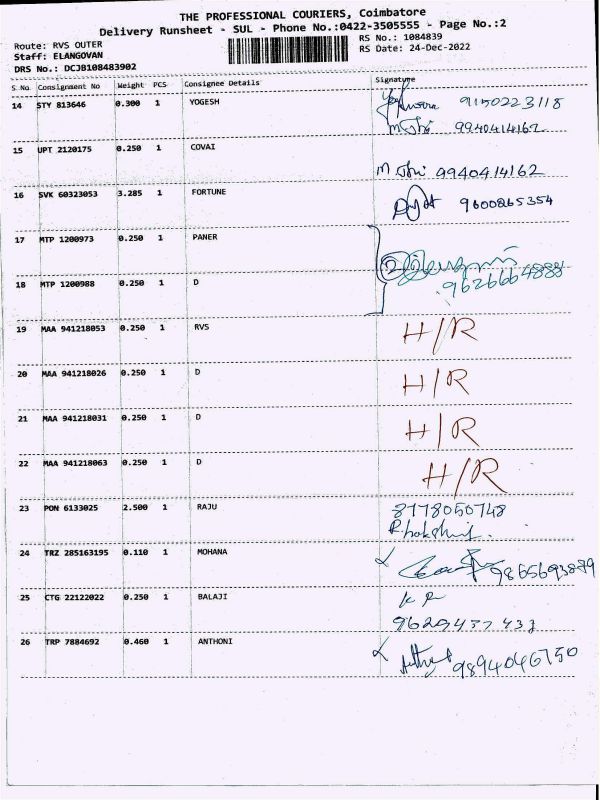 THE PROFESSIONAL COURIERS, Coimbatore
Delivery Runsheet - SUL - Phone No.:0422-3505555 - Page No.:2
Route: RVS OUTER
Staff: ELANGOVAN
DRS No.: DCJB108483902
RS No.: 1084839
RS Date: 24-Dec-2022
S No Consignment No Weight PCS Consignee Details Signature
14 STY 813646 0.300 1 YOGESH 9150223118
9940414162
15 UPT 2120175 0.250 1 COVAI
9940414162
16 SVK 60323053 3.285 1 FORTUNE 9600865354
17 MTP 1200973 0.250 1 PANER
2
18 MTP 1200988 0.250 1 D 9626664888
19 MAA 941218053 0.250 1 RVS H/R
20 MAA 941218026 0.250 1 D H/R
21 MAA 941218031 0.250 1 D H/R
22 MAA 941218063 0.250 1 D H/R
23 PON 6133025 2.500 1 RAJU 8778050748
24 TRZ 285163195 0.110 1 MOHANA 9865693879
25 CTG 22122022 0.250 1 BALAJI
9629437433
26 TRP 7884692 0.460 1 ANTHONI 9894046750